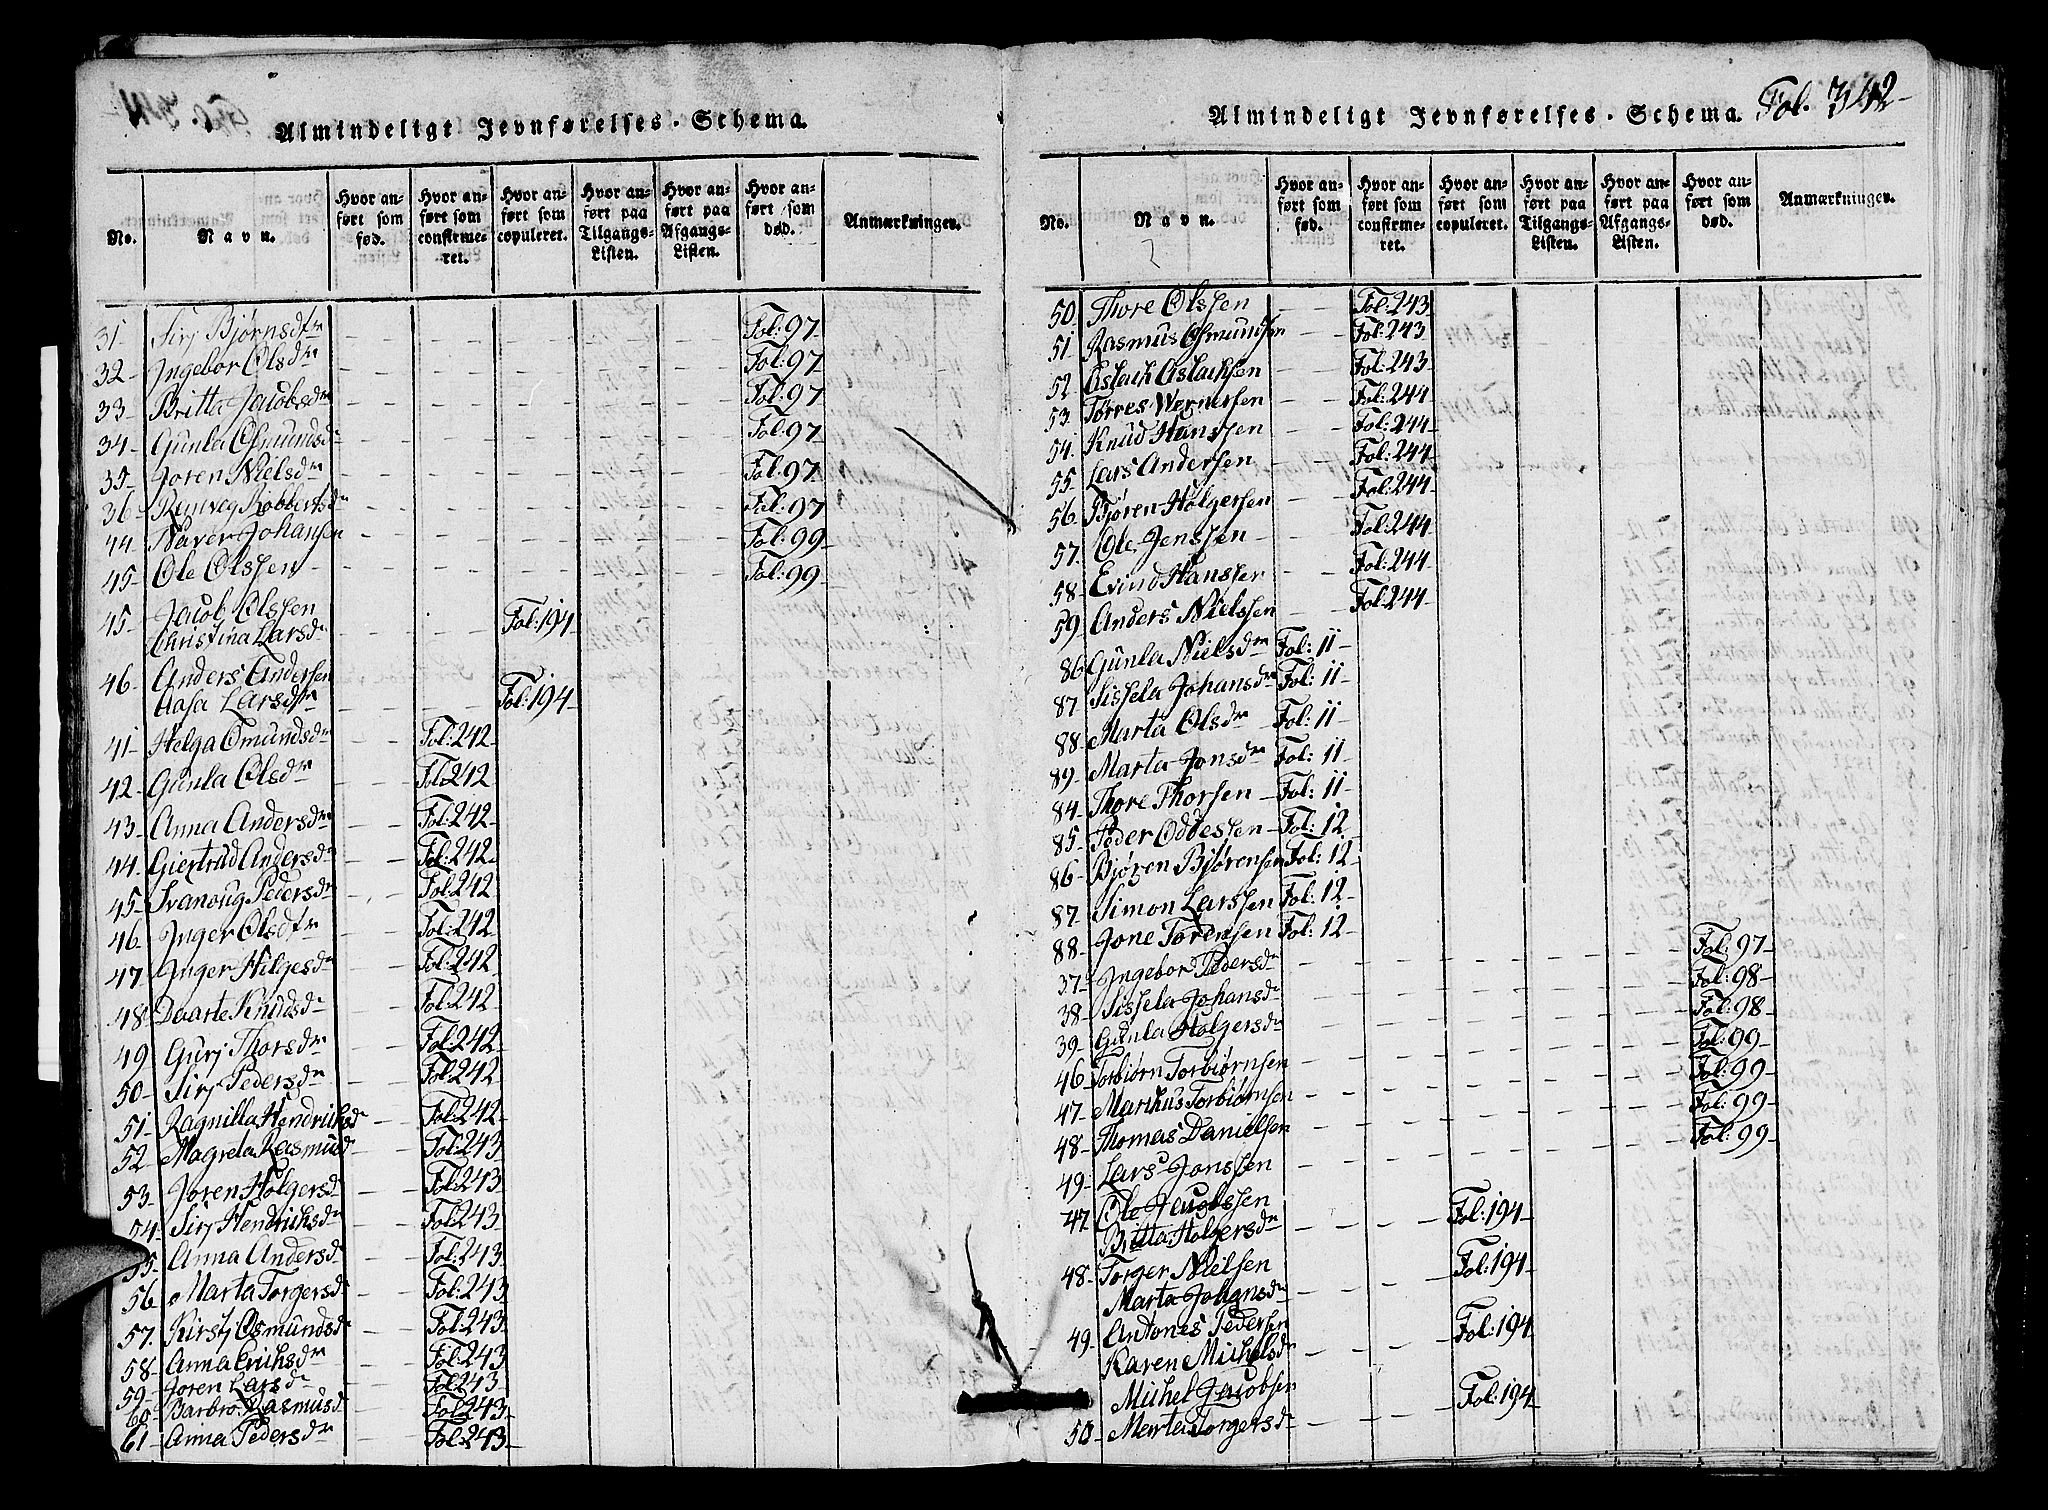 Almindeligt Jevnførelses-Schema.
No. Navn. Hvor anført som fød. Hvor anført som confirmeret. Hvor anført som copuleret. Hvor anført paa Tilgangs-Listen. Hvor anført paa Afgangs-Listen. Hvor anført som død. Anmærkninger.
31- Sirj Bjørnsdtr Fol:97-
32- Ingebor Olsdr Fol:97-
33- Britta Jacobsdr Fol:97
34- Gunla Osmundsdr Fol:97-
35- Joren Nielsdr Fol:97-
36- Renveg Robbertsdr Fol:97
44- Naver Johansen Fol:99-
45- Ole Olssen Fol:99-
45- Jacob Olssen
Christina Larsdr Fol:194
46- Anders Andersen
Aasa Larsdtr Fol:194-
41- Helga Omundsdr Fol:242
42- Gunla Olsdr Fol:242
43- Anna Andersdr Fol:242
44- Giertrud Andersdr Fol:242
45- Svanoug Pedersdr Fol:242
46- Inger Olsdtr Fol:242
47- Inger Helgesdr Fol:242
48- Daarte Knudsdr Fol:242
49 Gurj Thorsdr Fol:242
50- Sirj Pedersdr Fol:242
51- Ragnilla Hendrichsdr Fol:242
52 Magreta Rasmusdr Fol:243
53- Joren Holgersdr Fol:243
54- Sirj Hendrichsdr Fol:243
55- Anna Andersdr Fol:243
56 Marta Torgersdr Fol:243
57. Kirstj Osmundsdr Fol:243
58- Anna Erichsdr Fol:243
59- Joren Larsdr Fol:243
60- Barbro Rasmusdr Fol:243-
61- Anna Pedersdr Fol:243-
Almindeligt Jevnførelses-Schema. Fol. 342-
No. Navn. Hvor anført som fød. Hvor anført som confirmeret. Hvor anført som copuleret. Hvor anført paa Tilgangs-Listen. Hvor anført paa Afgangs-Listen. Hvor anført som død. Anmærkninger.
50- Thore Olssen Fol:243
51 Rasmus Osmundsen Fol:243
52 Aslach Aslachsen Fol:243
53. Tørres Wernersen Fol:244
54. Knud Hanssen Fol:244
55 Lars Andersen Fol:244
56. Bjøren Holgersen Fol:244
57. Ole Jenssen Fol:244
58- Evind Hanssen Fol:244
59 Anders Nielssen Fol:244
86 Gunla Nielsdr Fol: 11
87 Sissela Johansdr Fol: 11
88- Marta Olsdr Fol: 11-
89- Marta Jonsdr Fol: 11
84- Thore Thorsen Fol: 11-
85- Peder Oddessen Fol: 12
86- Bjøren Bjørensen Fol: 12
87. Simon Larssen Fol: 12-
88- Jone Torensen Fol: 12
37- Ingebor Pedersdr Fol: 97-
38- Sissela Johansdr Fol: 98-
39- Gunla Holgersdr Fol: 98
46 Torbiørn Torbiørnsen Fol: 99-
47- Markus Torbiørnsen Fol: 99-
48- Thomas Danielsen Fol: 99-
49- Lars Jonssen Fol: 99
47 Ole Jacobssen
Britta Holgersdr Fol:194-
48- Torger Nielsen
Marta Johansdr Fol:194
49- Antones Pedersen
Karen Michelsdr Fol:194
Michel Jacobsen
50- Marta Torgersdr Fol:194